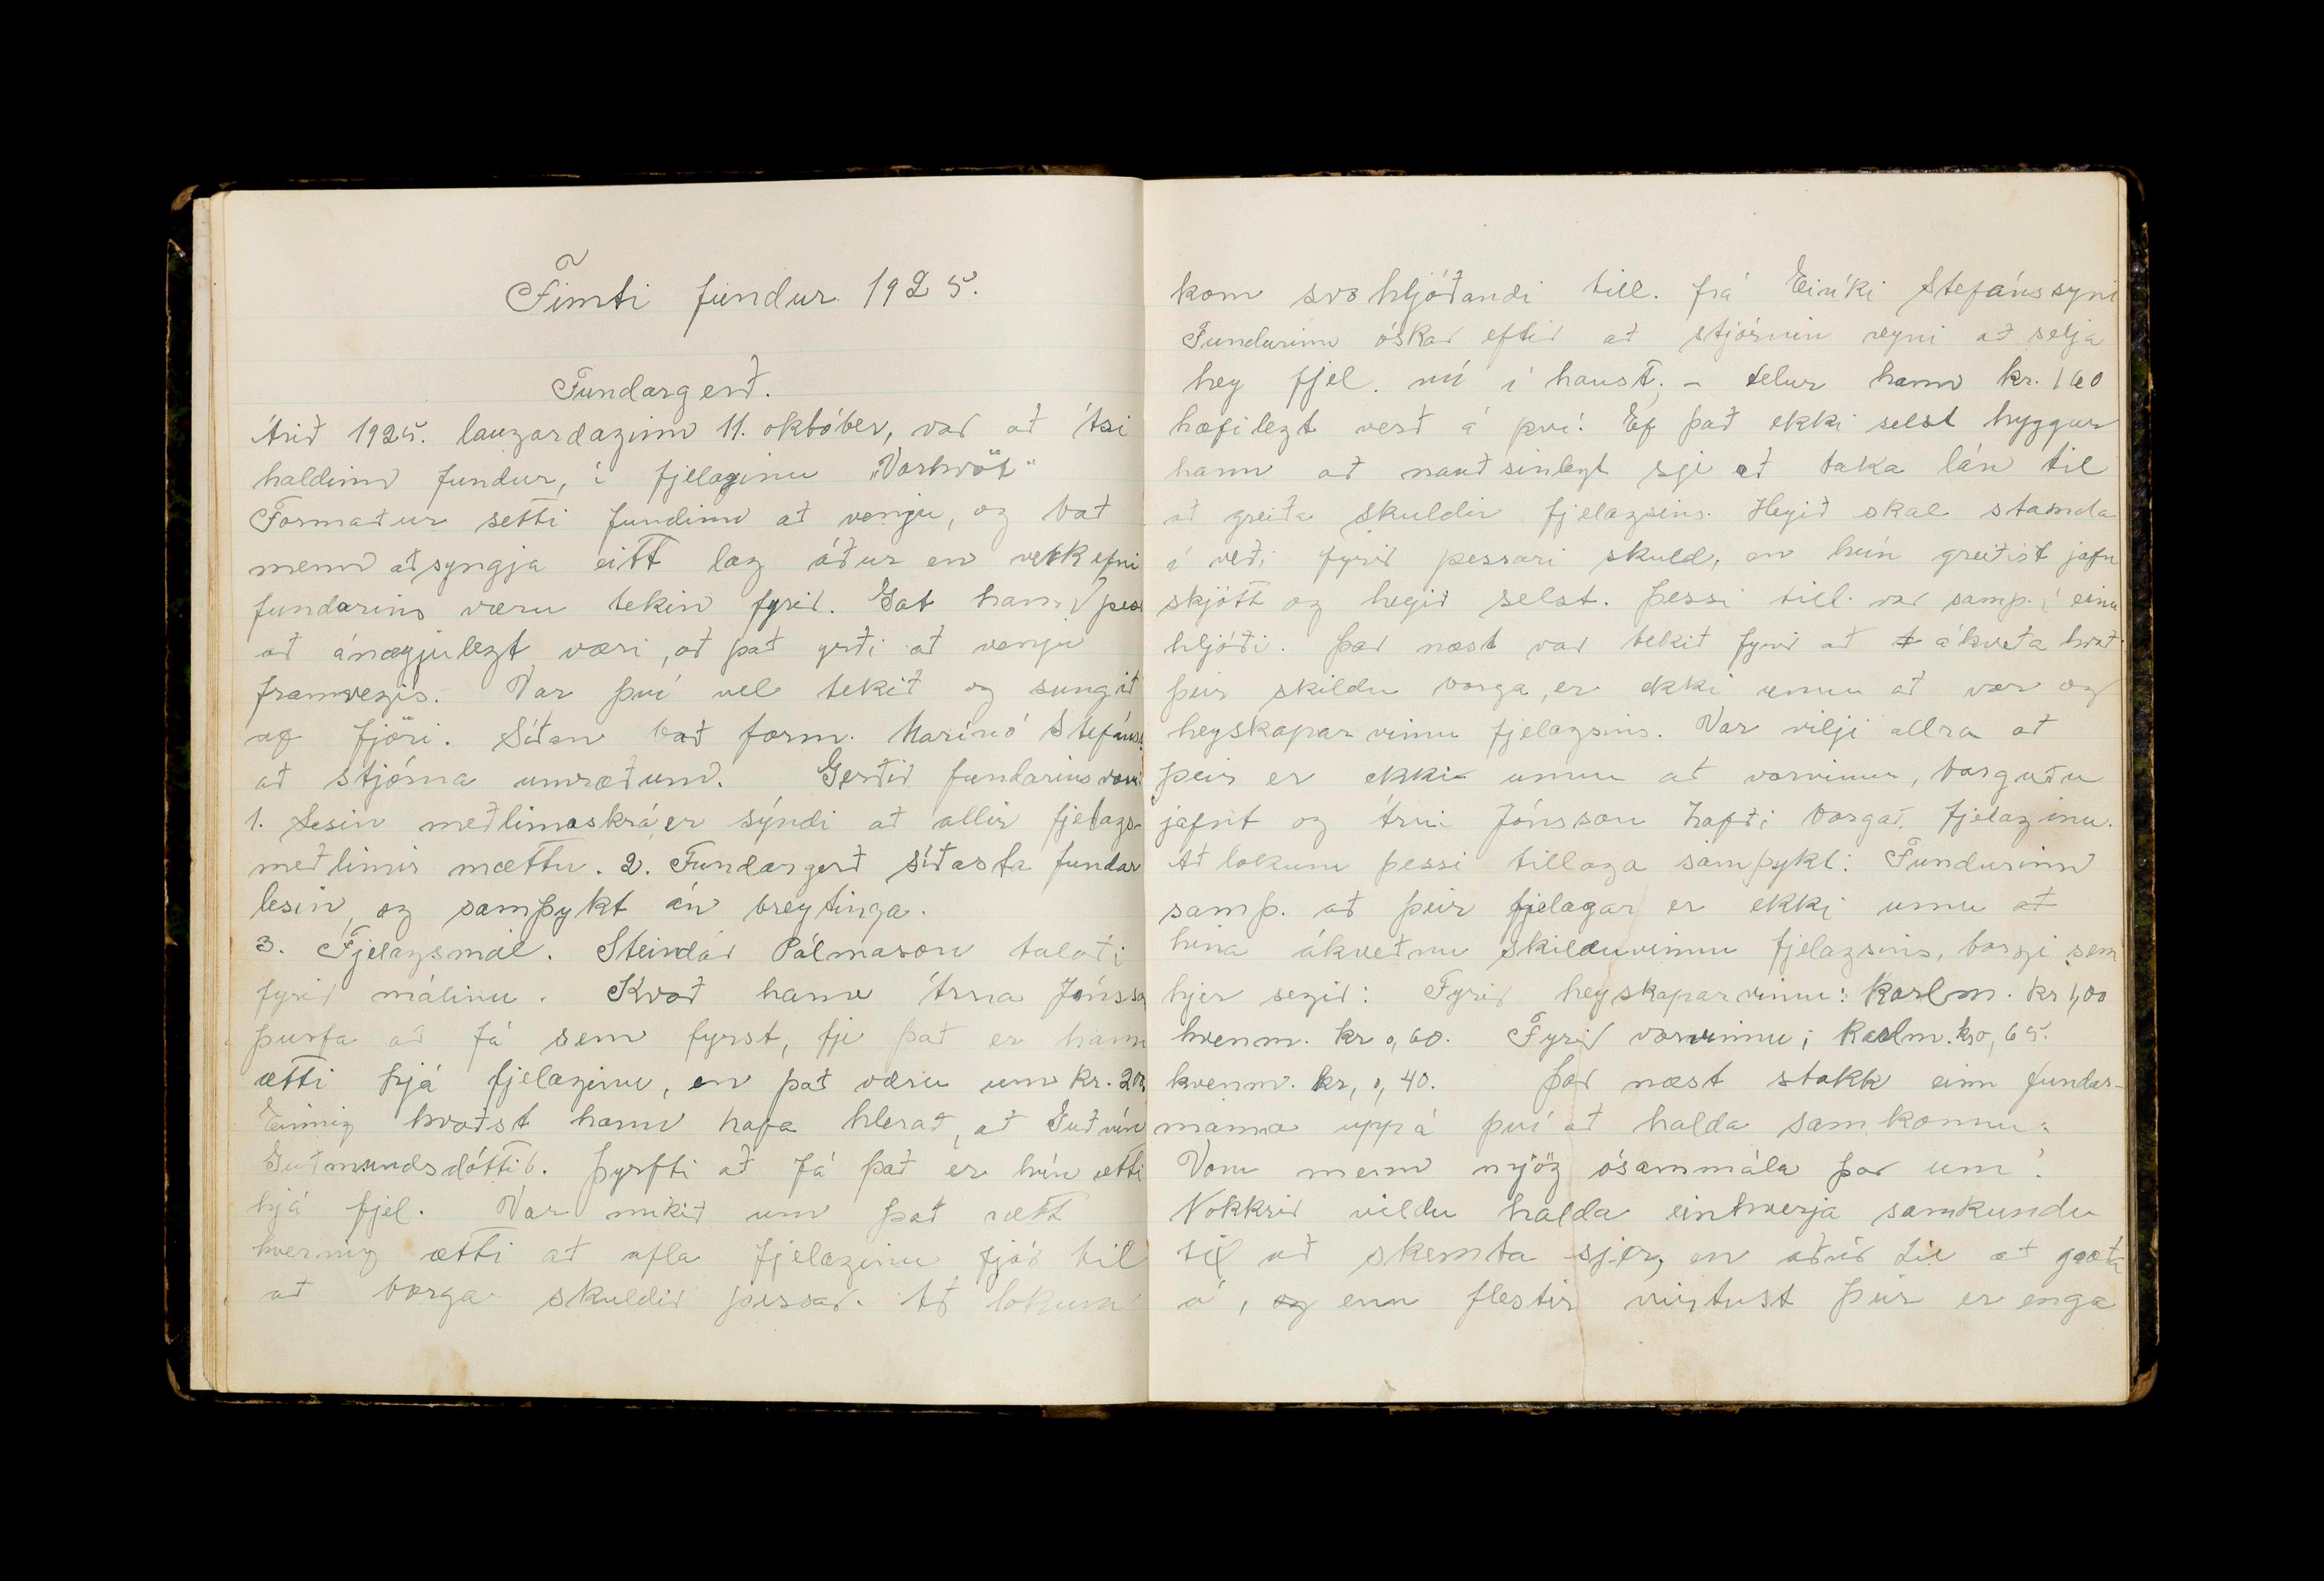 Fimti fundur 1925.
Fundargerð.
Árið 1925. laugardaginn 11. október, var að Ási
haldinn fundur, í fjelaginu „Vorhvöt"
Formaður setti fundinn að venju, og bað
menn að syngja eitt lag áður en verkefni
fundarins væru tekin fyrir. Gat hann þess
að ánægjulegt væri, að það yrði að venju
framvegis. Var því vel tekið og sungið
af fjöri. Síðan bað form. Marínó Stefánss.
að stjórna umræðum. Gerðir fundarins voru:
1. Lesin meðlimaskrá, er sýndi að allir fjelags-
meðlimir mættu. 2. Fundargerð síðasta fundar
lesin, og samþykt án breytinga.
3. Fjelagsmál. Steindór Pálmason talaði
fyrir málinu. Kvað hann Árna Jónsson
þurfa að fá sem fyrst, fje það er hann
ætti hjá fjelaginu, en það væru um kr. 200
Einnig kvaðst hann hafa hlerað, að Guðrún
Guðmundsdóttir. Þyrfti að fá það er hún ætti
hjá fjel. Var mikið um það rætt
hvernig ætti að afla fjelaginu fjár til
að borga skuldir þessar. Að lokum
kom svohljóðandi till. frá Eiríki Stefánssyni
Fundurinn óskar eftir að stjórnin reyni að selja
hey fjel. nú í haust; - telur hann kr. 160
hæfilegt verð á því. Ef það ekki selst hyggur
hann að nauðsinlegt sje að taka lán til
að greiða skuldir fjelagsins. Heyið skal standa
í veði fyrir þessari skuld, en hún greiðist jafn
skjótt og heyið selst. Þessi till. var samþ. í einu
hljóði. Þar næst var tekið fyrir að ákveða hvað
þeir skildu borga, er ekki unnu að vor og
heyskaparvinnu fjelagsins. Var vilji allra að
þeir er ekki unnu að vorvinnu, borguðu
jafnt og Árni Jónsson hafði borgað fjelaginu.
Að lokum þessi tillaga samþykt: Fundurinn
samþ. að þeir fjelagar er ekki unnu að
hina ákveðnu skilduvinnu fjelagsins, borgi sem
hjer segir: Fyrir heyskaparvinnu: Karlm. kr 1,00
kvenm. kr 0,60. Fyrir vorvinnu; Karlm. kr 0,65.
kvenm. kr, 0,40. Þar næst stakk einn fundar-
manna uppá því að halda samkomu.
Voru menn mjög ósammála þar um.
Nokkrir vildu halda einhverja samkundu
til að skemta sjer, en aðrir til að græða
á, og enn flestir virtust þeir er enga